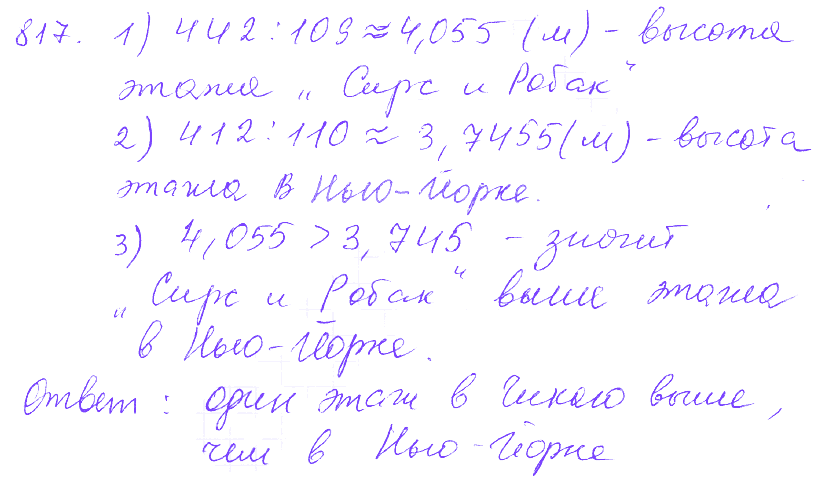 817. 1) 442 : 109 ≈ 4,055 (м) – высота
этажа „Сирс и Робак“
2) 412 : 110 ≈ 3,7455 (м) – высота
этажа в Нью-Йорке.
3) 4,055 > 3,745 – значит
„Сирс и Робак“ выше этажа
в Нью-Йорке.
Ответ : один этаж в Чикаго выше,
чем в Нью-Йорке